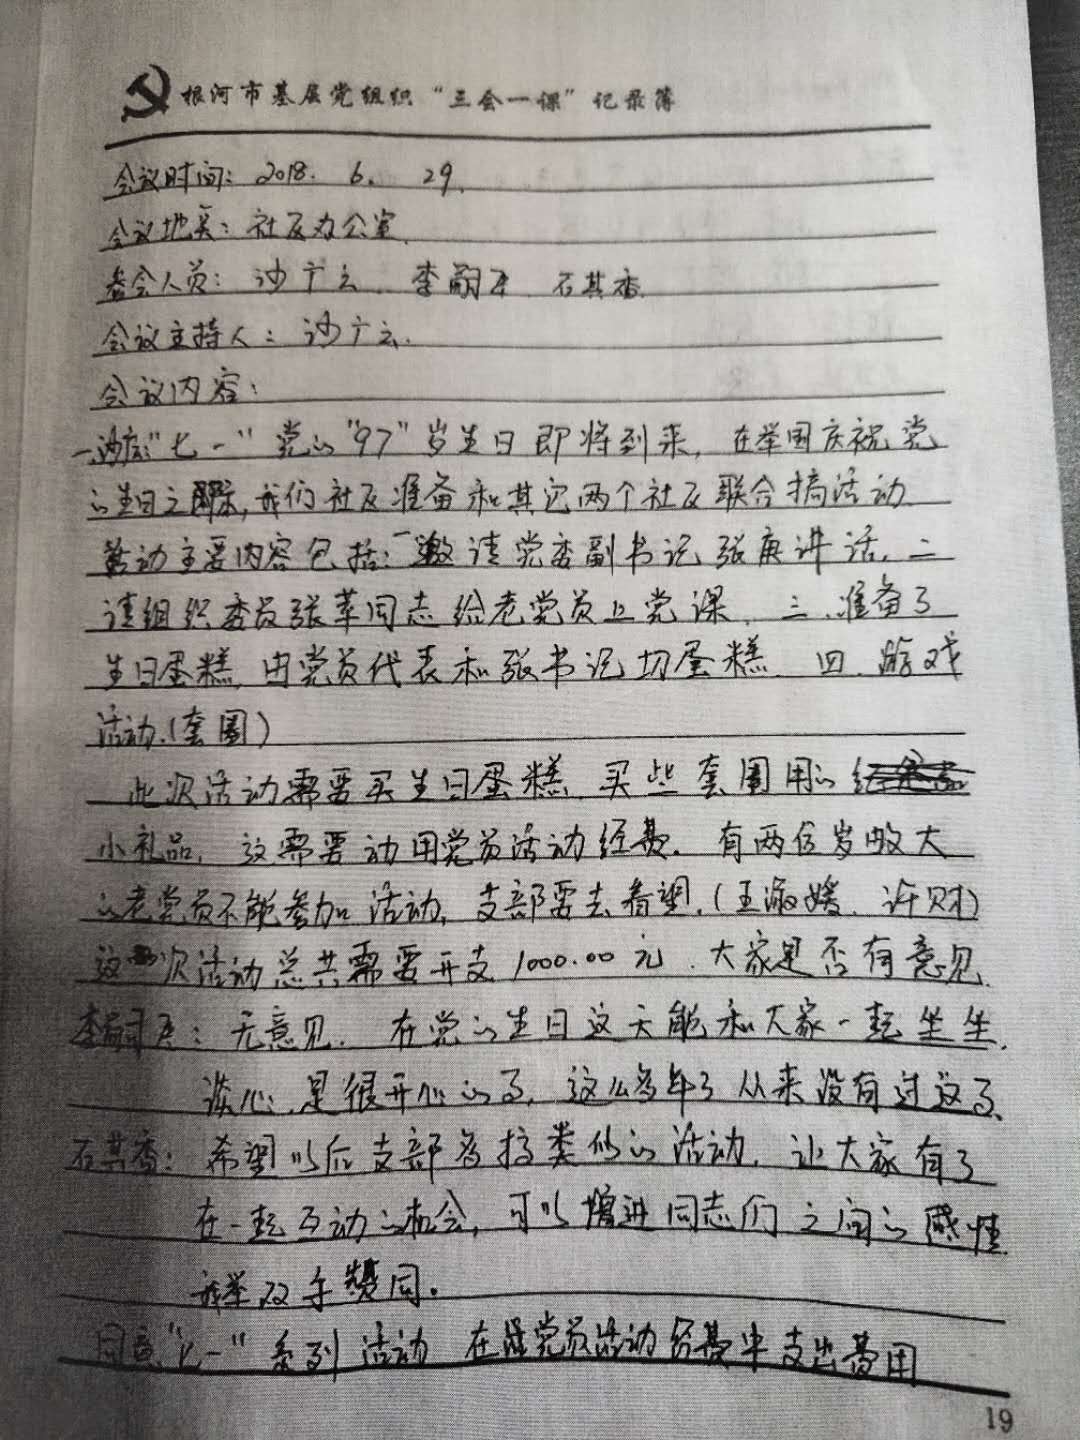 根河市基层党组织“三会一课”记录簿
会议时间：2018. 6. 29.
会议地点：社区办公室.
参会人员：沙广云. 李嗣军. 石其香.
会议主持人：沙广云.
会议内容：
“七一”党的“97”岁生日即将到来，在举国庆祝党
的生日之际，我们社区准备和其它两个社区联合搞活动.
活动主要内容包括：一邀请党委副书记张庚讲话. 二
请组织委员张苹同志给老党员上党课. 三.准备了
生日蛋糕，由党员代表和张书记切蛋糕. 四.游戏
活动.(套圈)
此次活动需要买生日蛋糕. 买些套圈用的
小礼品，这需要动用党员活动经费. 有两位岁数大
的老党员不能参加活动，支部要去看望.(王淑媛. 许财)
这次活动总共需要开支1000.00元. 大家是否有意见.
李嗣军：无意见. 在党的生日这天能和大家一起坐坐.
谈心.是很开心的了，这么多年了从来没有过这了.
石其香：希望以后支部多搞类似的活动. 让大家有了
在一起互动的机会，可以增进同志们之间的感情
我举双手赞同。
同意“七一”系列活动 在党员活动经费中支出费用
19